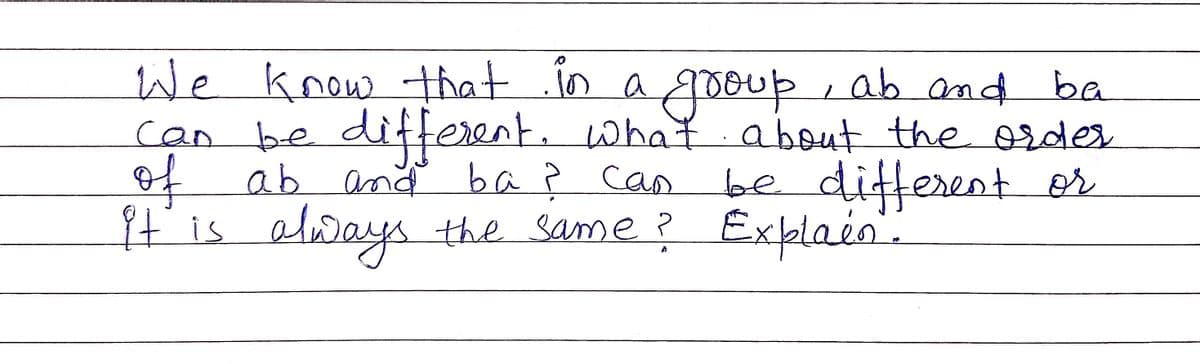 We know that in a group, ab and ba
can be different. what about the order
of ab and ba? can be different or
it is always the same? Explain.